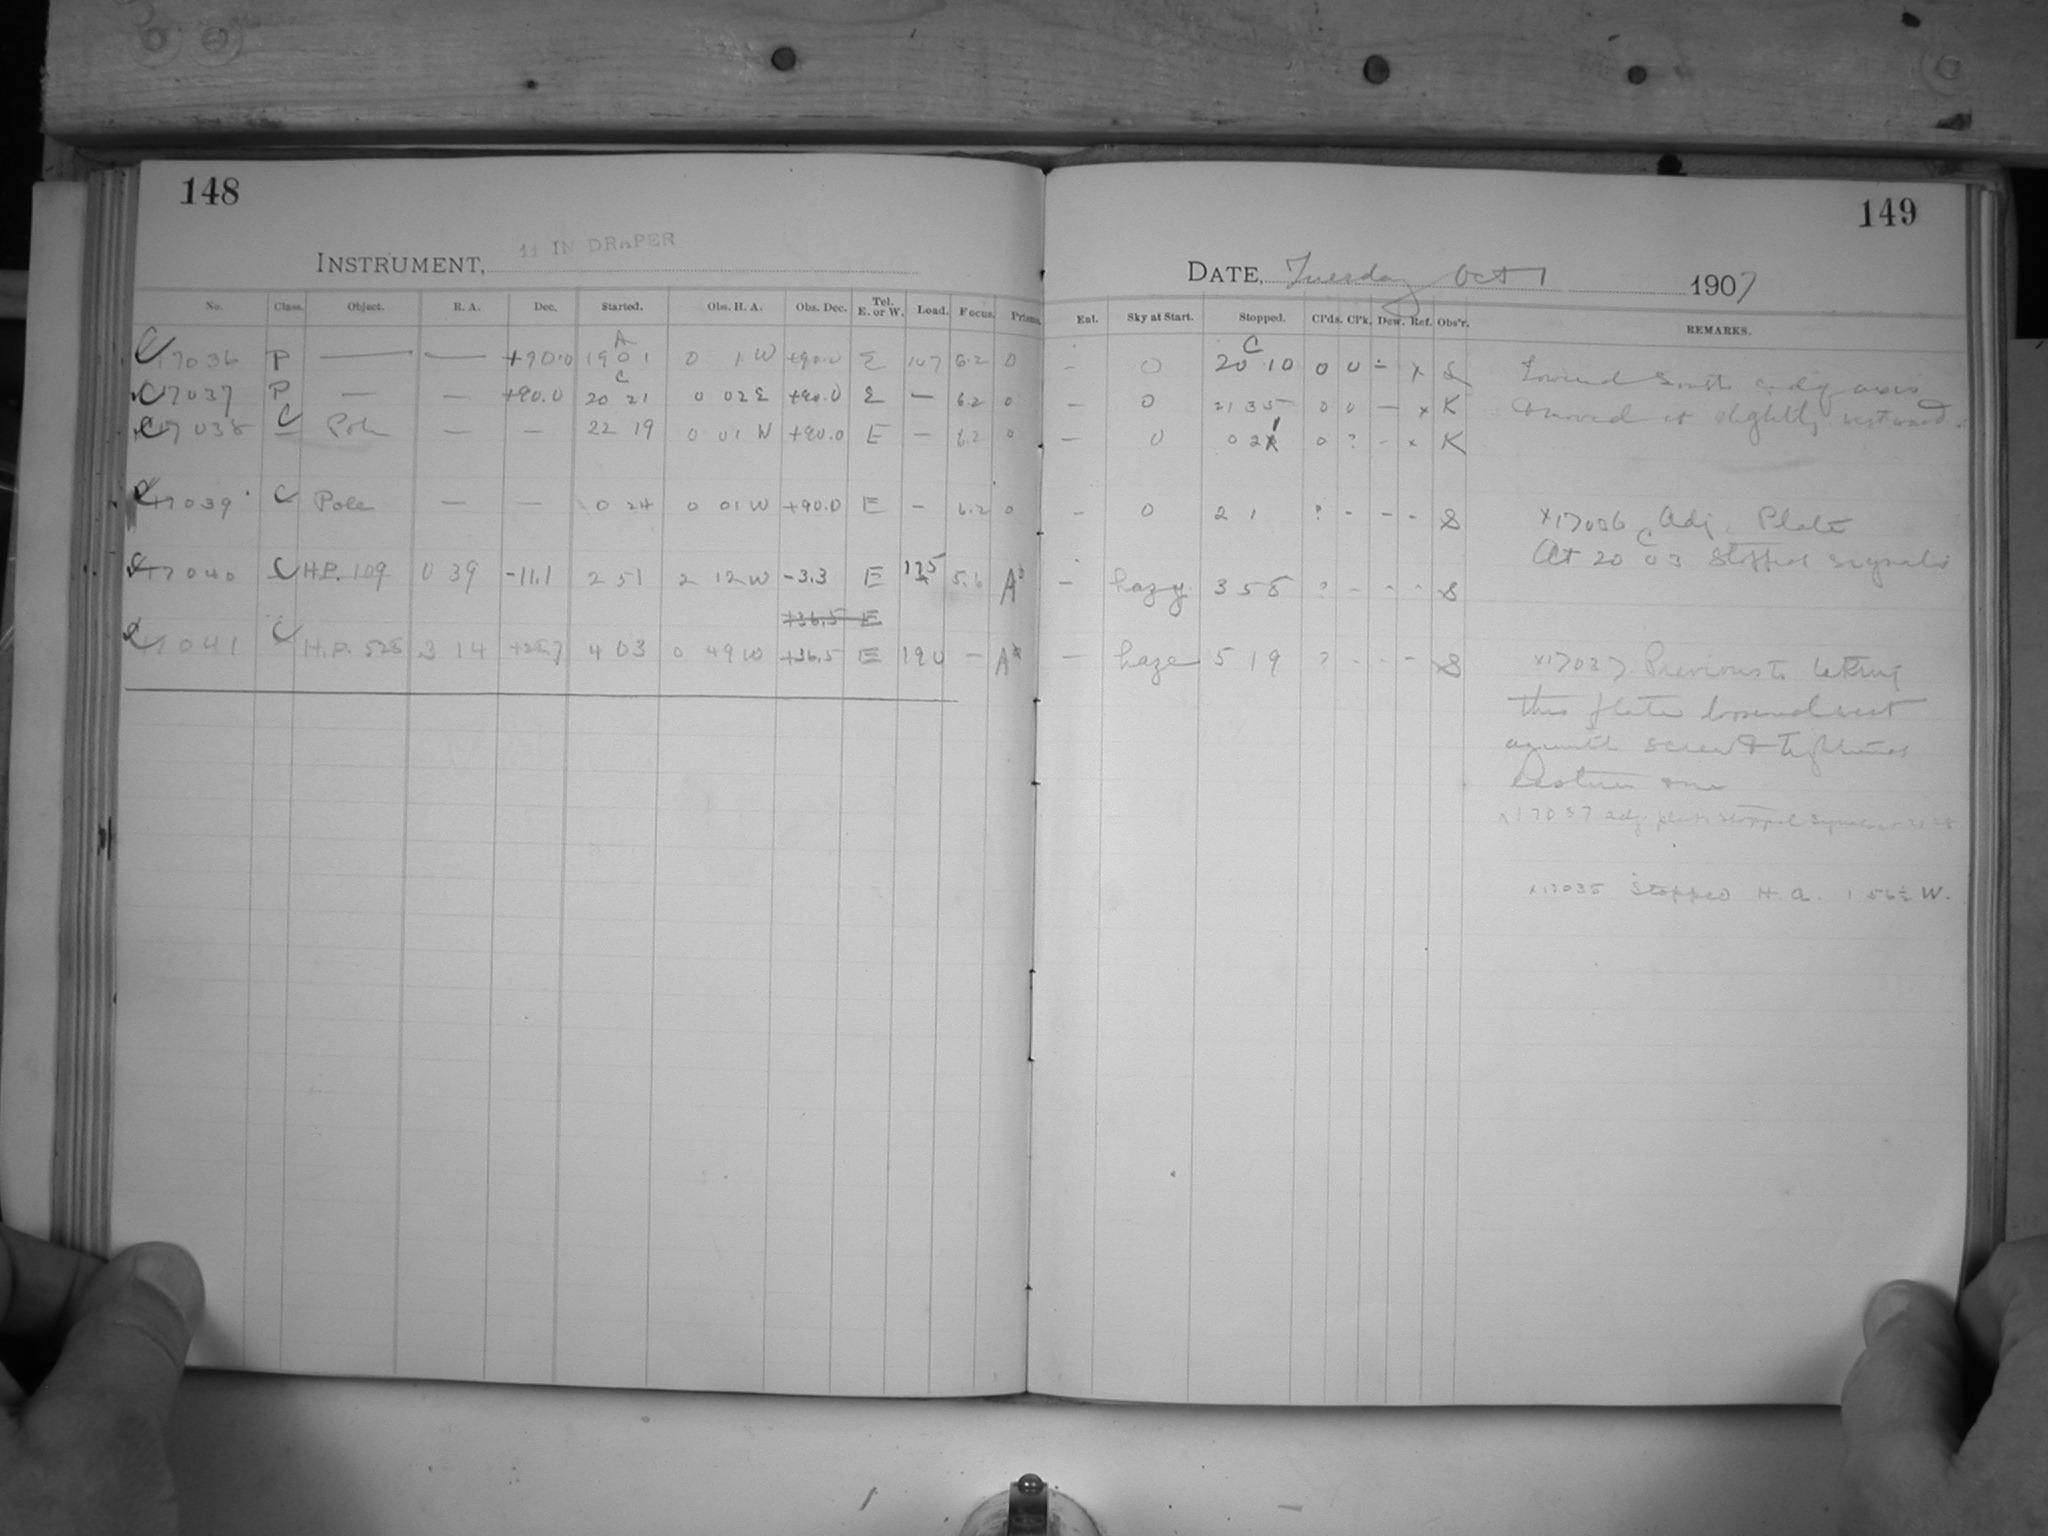 148
INSTRUMENT, 11 IN DRAPER
No. Class. Object. R. A. Dec. Started. Obs. H. A. Obs. Dec. Tel. E. or W. Load. Focus. Prisms.
A
C17036 P — — +90.0 19 01 0 1 W +90.0 E 147 6.2 0
C
C17037 P — — +90.0 20 21 0 02 E +90.0 E — 6.2 0
C17038 C Pole — — 22 19 0 01 W +90.0 E — 6.2 0
C17039 C Pole — — 0 24 0 01 W +90.0 E — 6.2 0
C17040 C H.P. 109 0 39 -11.1 2 51 2 12 W -3.3 E 175 5.6 A
+36.5 E
C17041 C H.P. 525 3 14 4 03 0 49 W +36.5 E 190 — A
149
DATE, Tuesday Oct 1 1907
Ent. Sky at Start. Stopped. Cl'ds. Cl'k. Dew. Ref. Obs'r. REMARKS.
C
- 0 20 10 0 0 - x S
- 0 21 35 0 0 — x K
— 0 0 21 0 ? - x K
- 0 2 1 ? - - - S
- hazy 3 58 ? - - - S
— haze 5 19 ? - - - S
Lowered South end of axis
& moved it slightly westward.
x17036 Adj. Plate
C
At 20 03 stopped signals
x17037 Previous to taking
this plate loosened west
azimuth screw & tightened
eastern one
x17037 adj. plate stopped signals at 21 28
x17035 Stopped H. A. 1 56½ W.